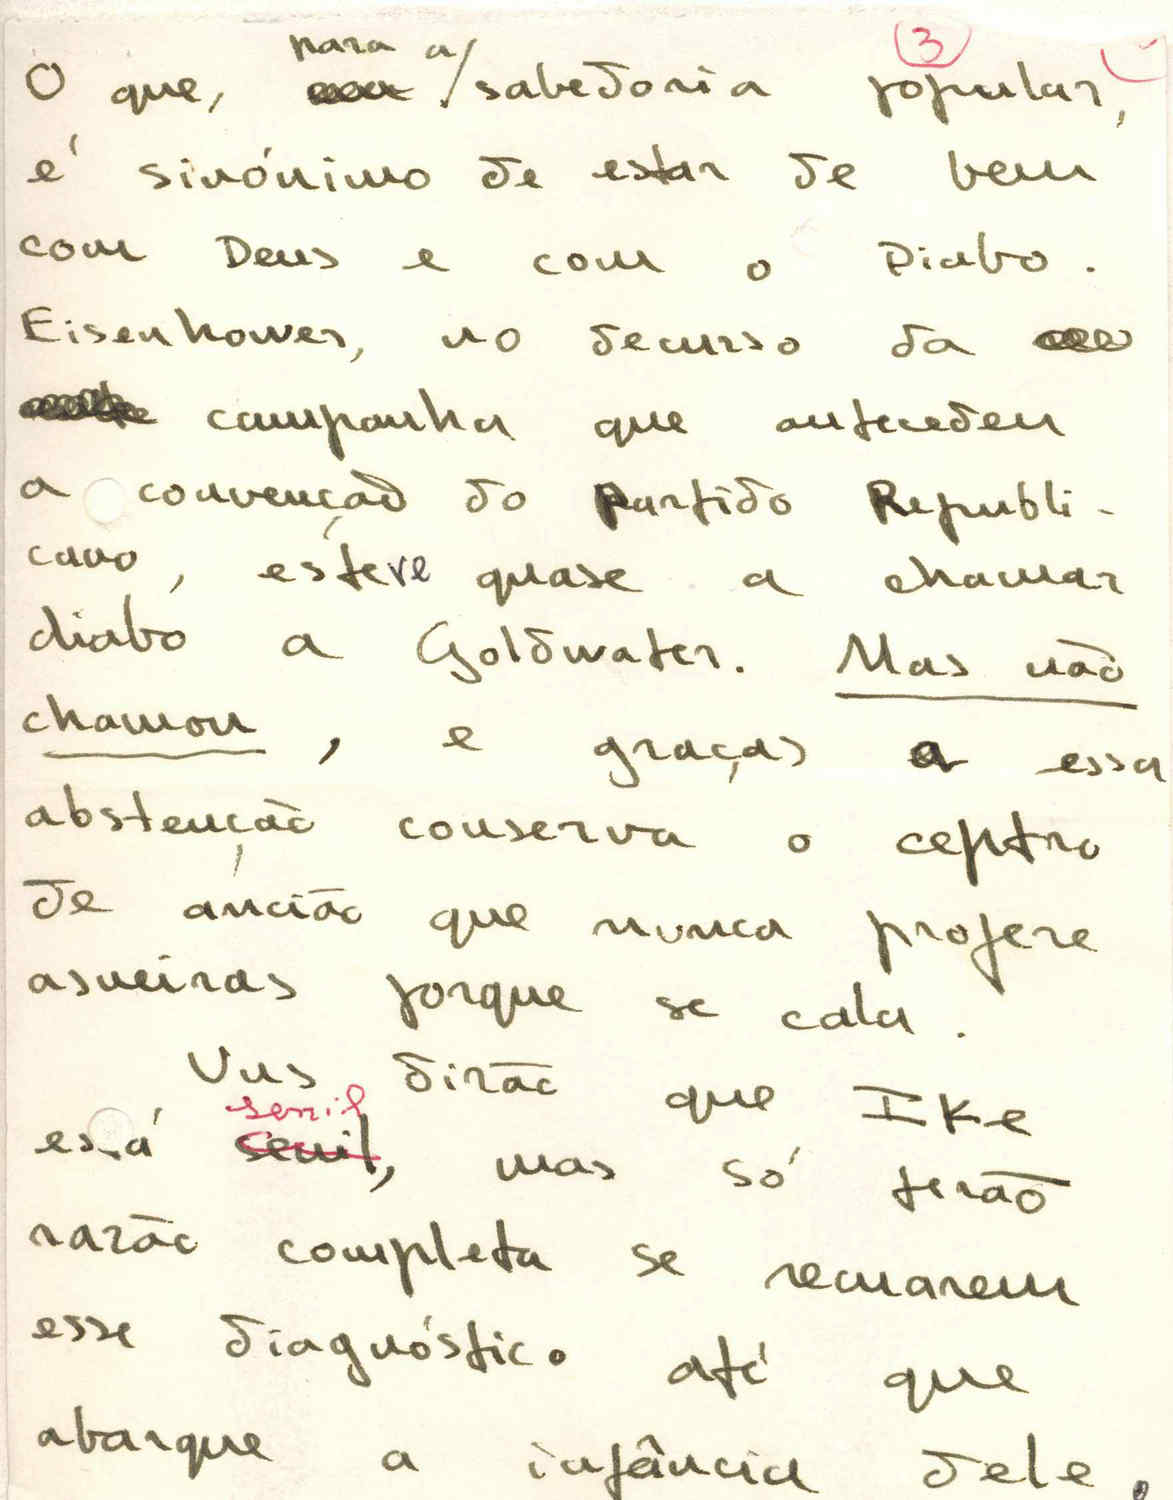 3
O que, para a sabedoria popular,
é sinónimo de estar de bem
com Deus e com o Diabo.
Eisenhower, no decurso da
campanha que antecedeu
a convenção do Partido Republi-
cano, esteve quase a chamar
diabo a Goldwater. Mas não
chamou, e graças a essa
abstenção conserva o ceptro
de ancião que nunca profere
asneiras porque se cala.
Uns dirão que Ike
senil
está senil, mas só terão
razão completa se recuarem
esse diagnóstico até que
abarque a infância dele.